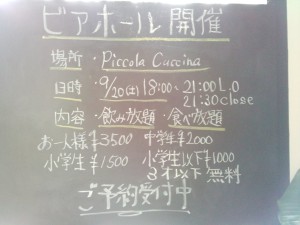 ビアホール開催
場所・Piccola Cuccina
日時・9/20(土) 18:00~21:00 L.O
21:30 close
内容・飲み放題・食べ放題
お一人様¥3500 中学生¥2000
小学生¥1500 小学生以下¥1000
3才以下 無料
ご予約受付中